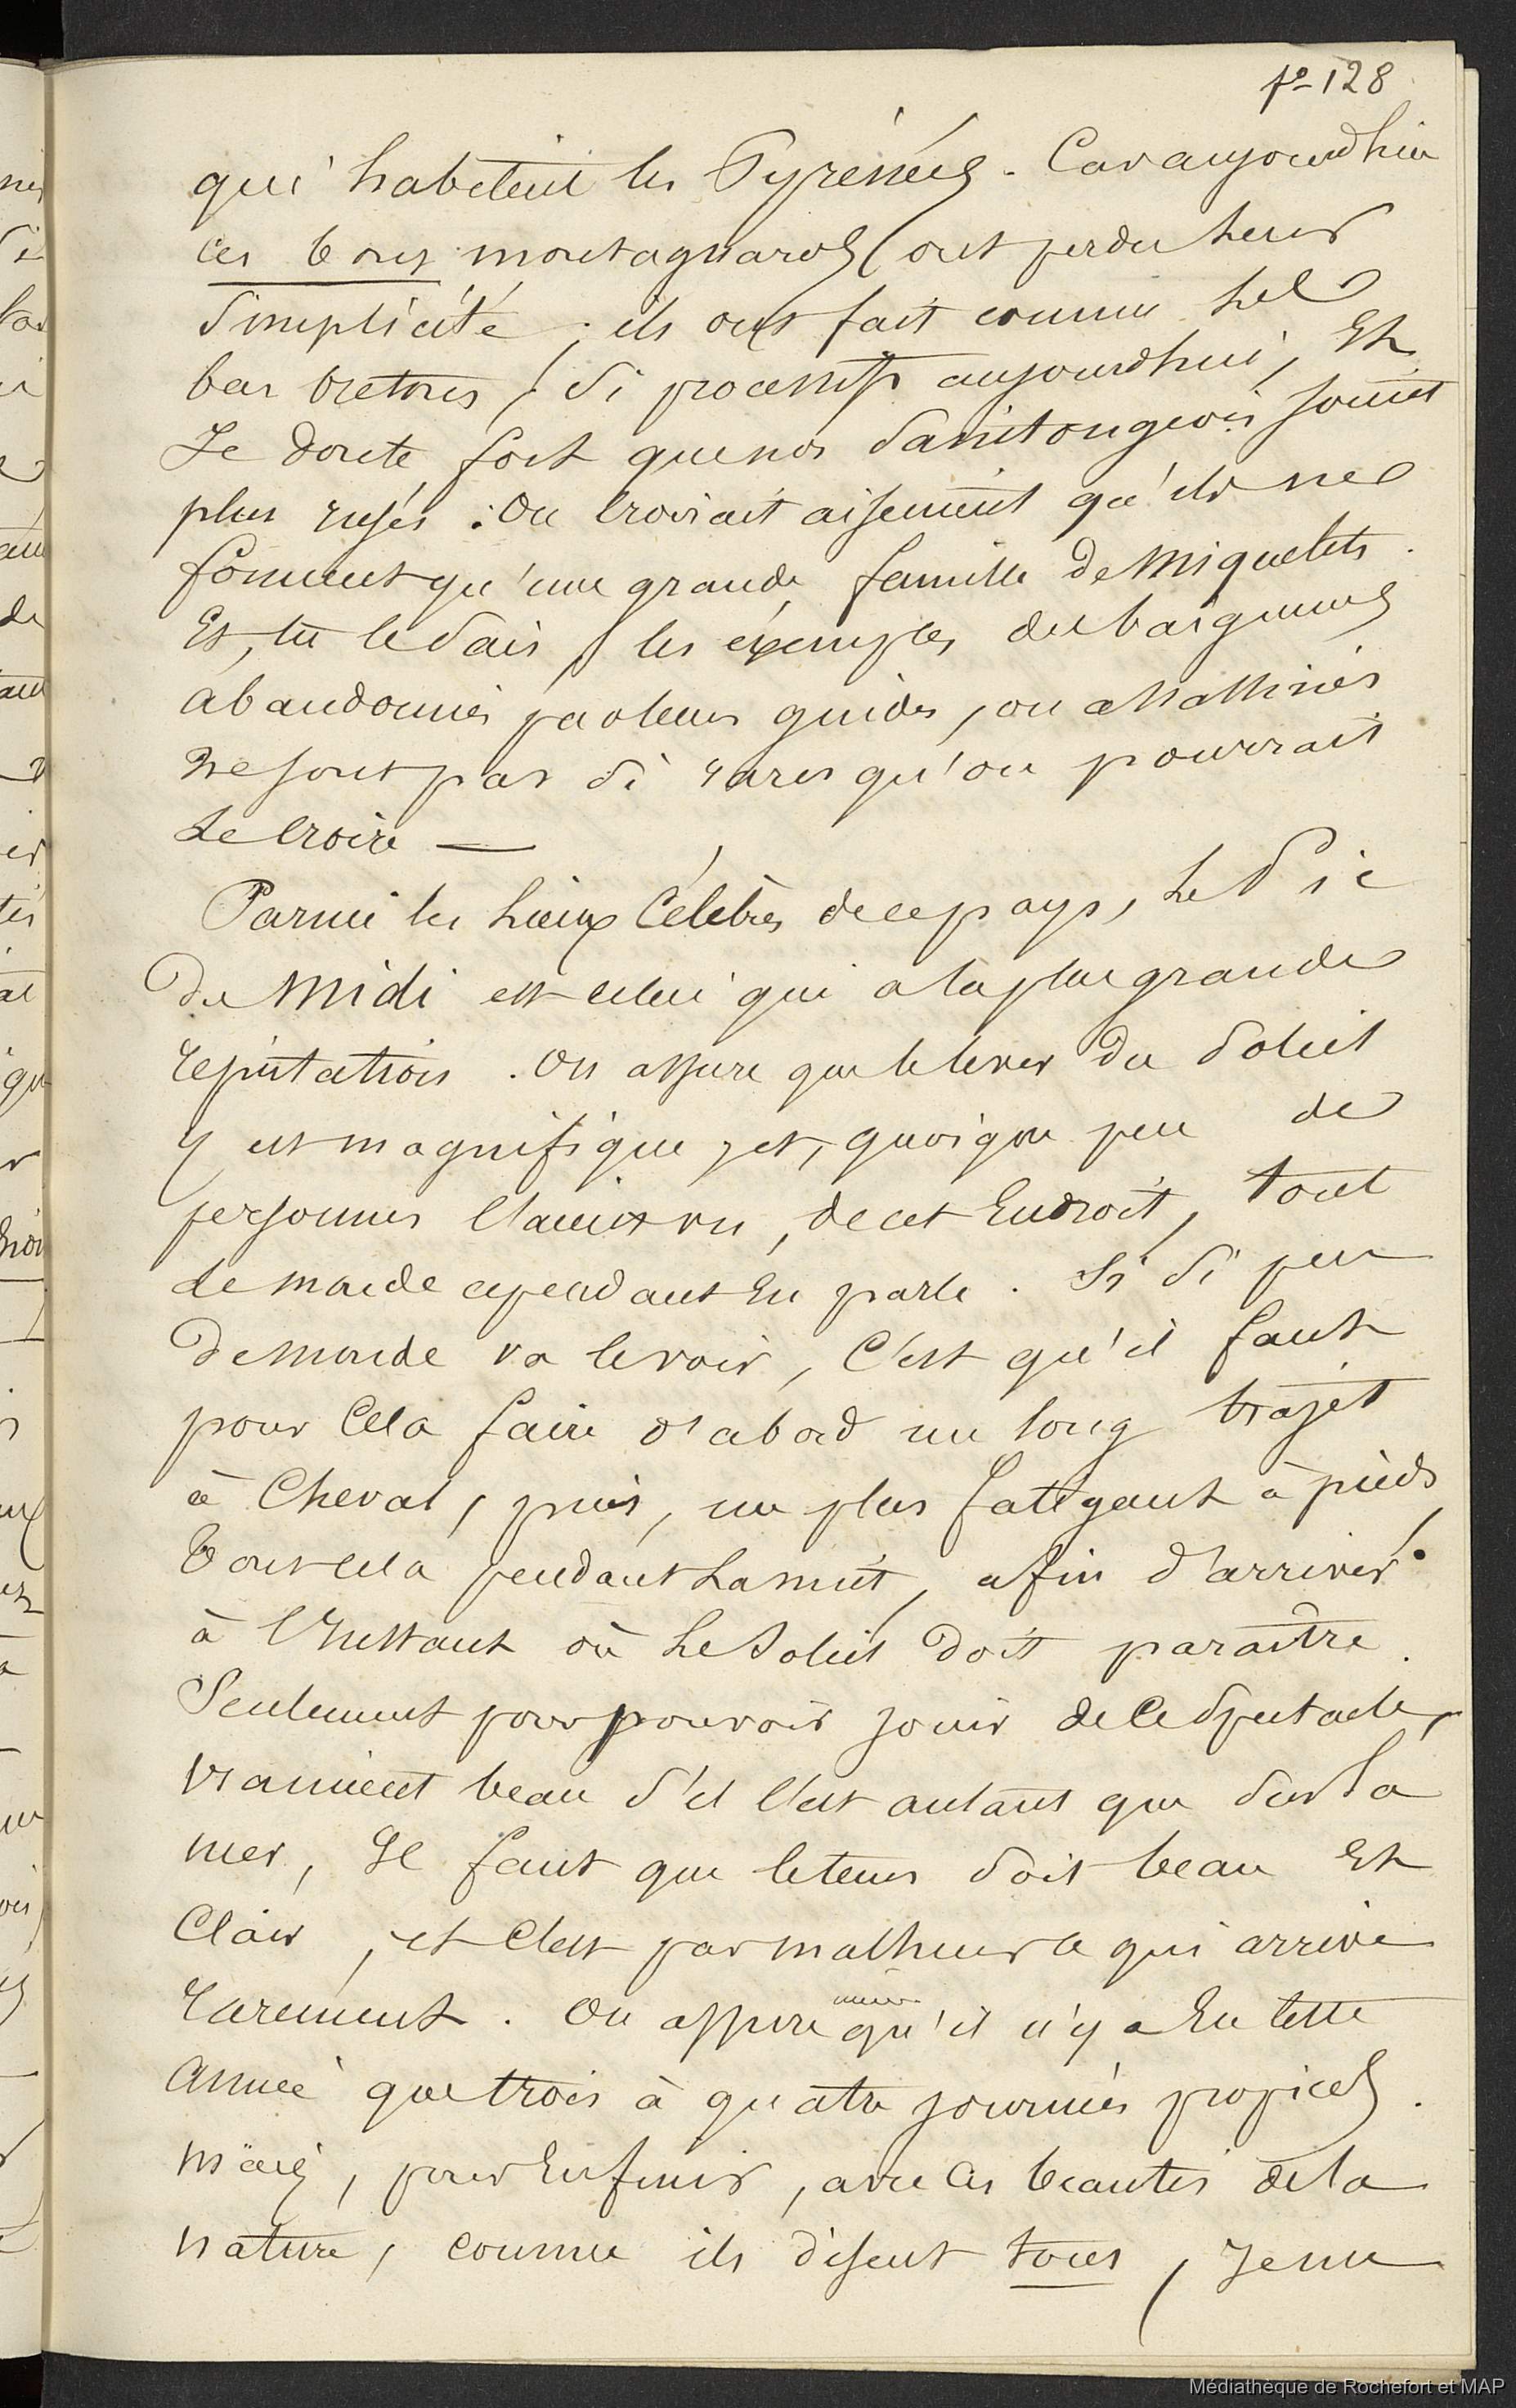 fo 128
qui habitent les Pyrénées. Car aujourdhui
ces bons montagnards ont perdu leur
simplicité ; ils ont fait comme les
bas bretons, si processifs aujourdhui, Et
Je doute fort que nos Saintongeois soient
plus rusés : On croirait aisement qu'ils ne
forment qu'une grande famille de Miquelets.
Et, tu le sais, les exemples des baigneurs
abandonnés par leurs guides, ou assassinés
ne sont pas si rares qu'on pourrait
le croire —
Parmi les lieux célèbres de ce pays, le Pic
du Midi est celui qui a la plus grande
réputation. On assure que le lever du soleil
y est magnifique, et, quoique peu de
personnes l'aient vu, de cet Endroit, tout
le monde cependant En parle. Si si peu
de monde va le voir, C'est qu'il faut
pour Cela faire d'abord un long trajet
à Cheval, puis, un plus fatigant à pieds,
Tout cela pendant la nuit, afin d'arriver
à l'Instant où le soleil doit paraître.
Seulement pour pouvoir jouir de Ce Spectacle,
vraiment beau s'il l'est autant que sur la
mer, Il faut que le tems soit beau Et
Clair, et C'est par malheur ce qui arrive
rarement. On assure qu'il n'y a En cette
année que trois à quatre journées propices.
Mais, pour En finir, avec les beautés de la
nature, comme ils disent tous, Je ne
Médiathèque de Rochefort et MAP